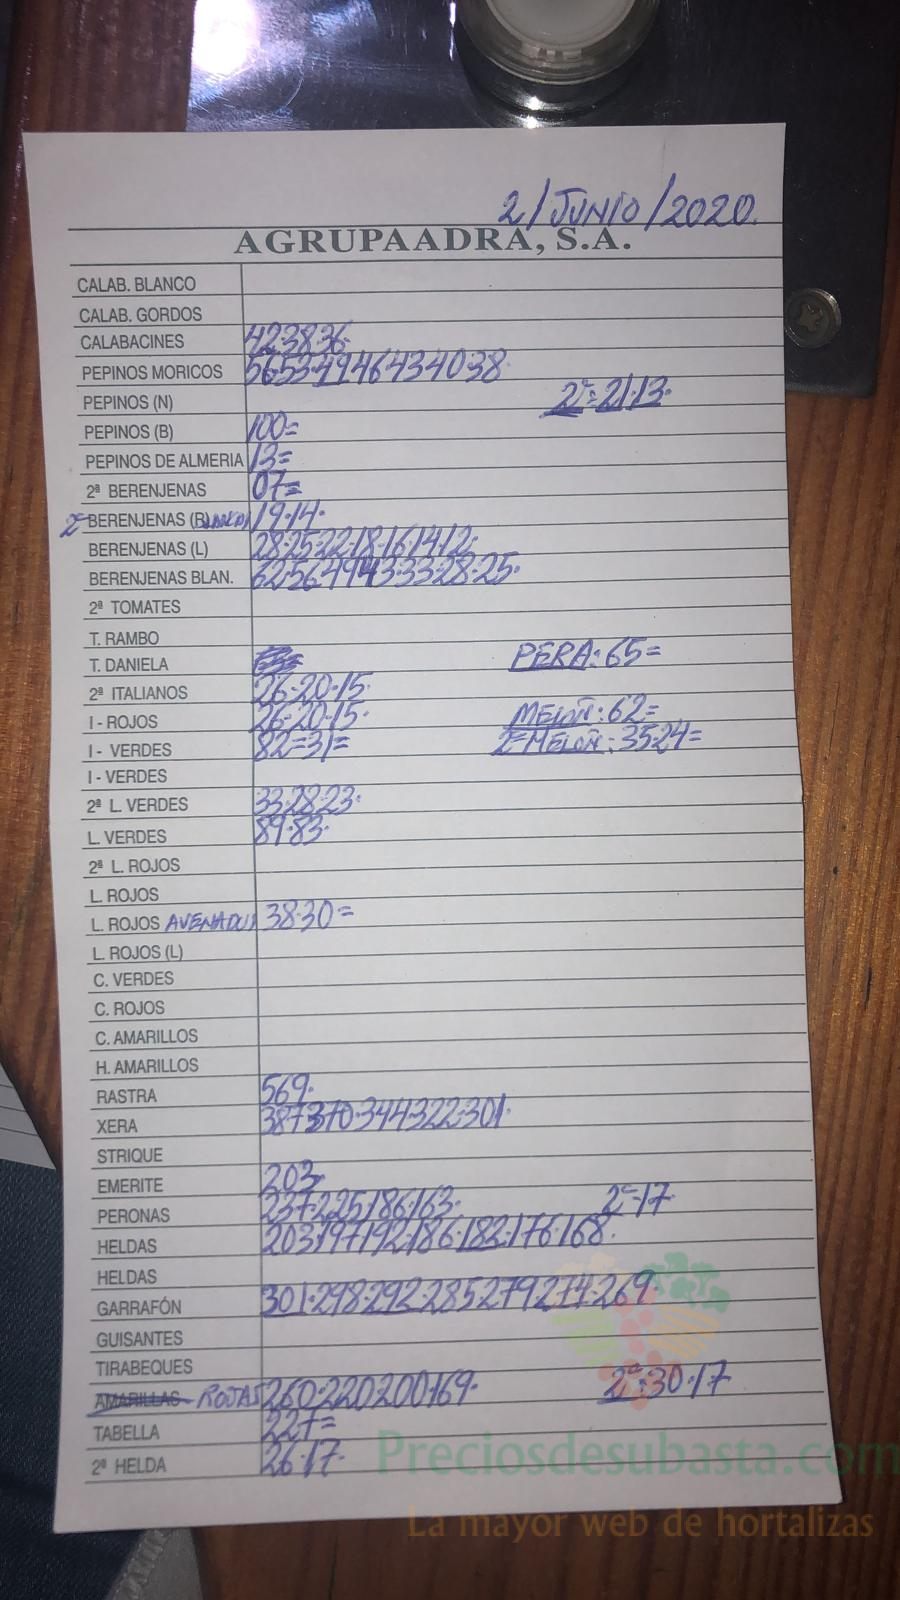 2/JUNIO/2020.
AGRUPAADRA, S.A.
CALAB. BLANCO
CALAB. GORDOS
CALABACINES 42·38·36·
PEPINOS MORICOS 56·53·49·46·43·40·38·
PEPINOS (N) 2ª=21·13·
PEPINOS (B) 100=
PEPINOS DE ALMERIA 13=
2ª BERENJENAS 07=
2ª BERENJENAS (BLANCAS) 19·14·
BERENJENAS (L) 28·25·22·18·16·14·12·
BERENJENAS BLAN. 62·56·49·43·33·28·25·
2ª TOMATES
T. RAMBO
T. DANIELA PERA: 65=
2ª ITALIANOS 26·20·15·
I - ROJOS 26·20·15· MELOÑ: 62=
I - VERDES 82=31= 2ª MELOÑ: 35·24=
I - VERDES
2ª L. VERDES 33·28·23·
L. VERDES 89·83·
2ª L. ROJOS
L. ROJOS
L. ROJOS AVENADOS 38·30=
L. ROJOS (L)
C. VERDES
C. ROJOS
C. AMARILLOS
H. AMARILLOS
RASTRA 569·
XERA 387·370·344·322·301·
STRIQUE
EMERITE 203·
PERONAS 237·225·186·163· 2ª·17·
HELDAS 203·197·192·186·182·176·168·
HELDAS
GARRAFÓN 301·298·292·285·279·274·269·
GUISANTES
TIRABEQUES
AMARILLAS ROJAS 260·220·200·169· 2ª:30·17
TABELLA 227=
2ª HELDA 26·17·
Preciosdesubasta.com
La mayor web de hortalizas